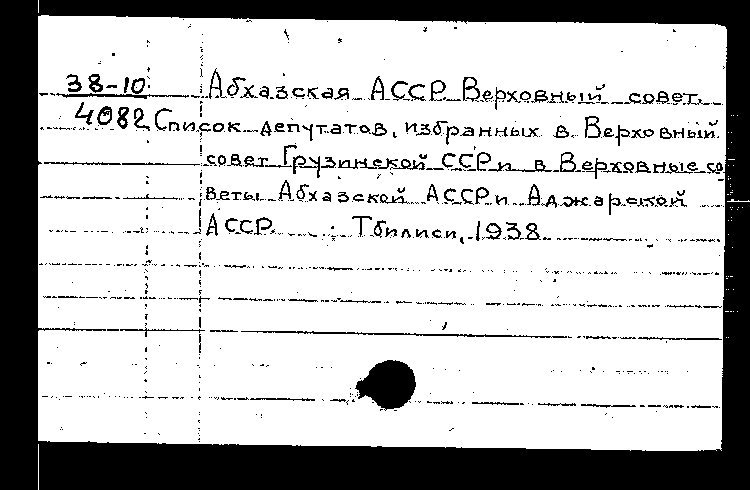 38-10 Абхазская АССР. Верховный совет.
4082 Список депутатов, избранных в Верховный
совет Грузинской ССР и в Верховные со
веты Абхазской АССР и Аджарской
АССР. : Тбилиси, 1938.